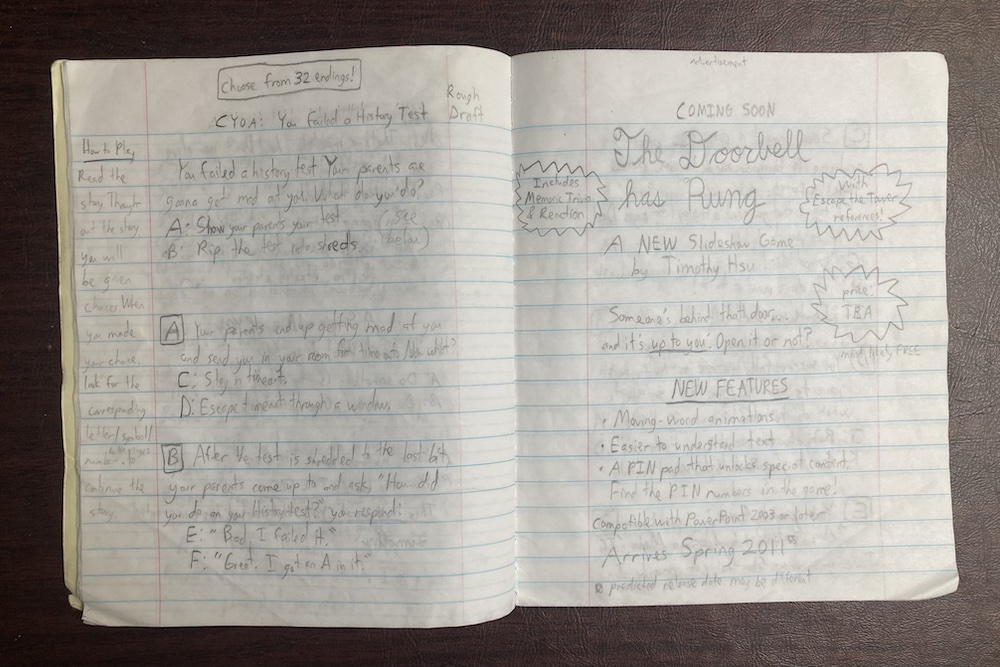 Choose from 32 endings!
Rough
Draft
CYOA: You Failed a History Test
How to Play
Read the
story. Through
out the story
you will
be given
choices. When
you made
your choice,
look for the
corresponding
letter/symbol/
number to
continue the
story.
You failed a history test. Your parents are
gonna get mad at you. What do you do?
A: Show your parents your test
B: Rip the test into shreds
(see
below)
A Your parents end up getting mad at you
and send you in your room for time outs. Now what?
C: Stay in timeout.
D: Escape timeout through a window.
B After the test is shredded to the last bit,
your parents come up to and ask, "How did
you do on your history test?" you respond:
E: "Bad. I failed it."
F: "Great. I got an A in it."
Advertisement
COMING SOON
The Doorbell
has Rung
Includes
Memory, Trivia
& Reaction
With
Escape the Tower
references!
A NEW Slideshow Game
by Timothy Hsu
price:
TBA
most likely FREE
Someone's behind that door...
and it's up to you. Open it or not?
NEW FEATURES
• Moving-word animations
• Easier to understand text
• A PIN pad that unlocks special content.
Find the PIN numbers in the game.
Compatible with PowerPoint 2003 or later
Arrives Spring 2011
predicted release date may be different